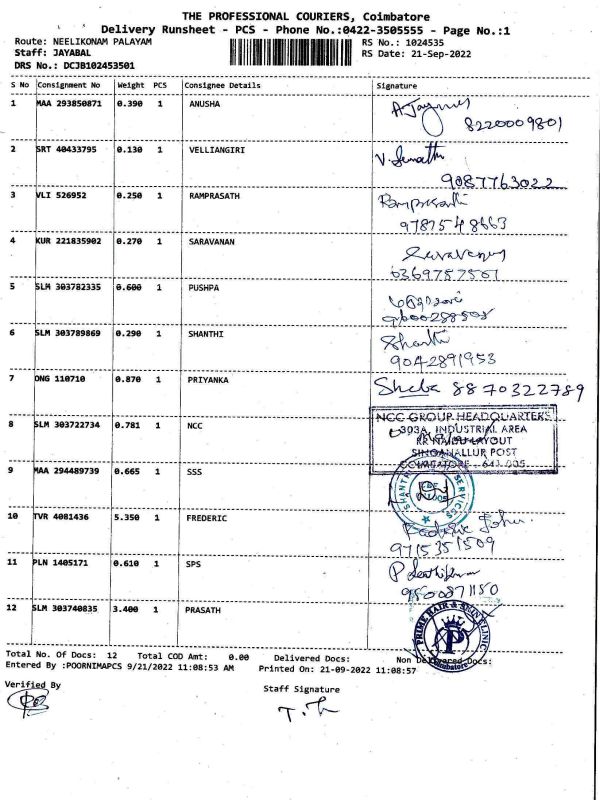 THE PROFESSIONAL COURIERS, Coimbatore
Delivery Runsheet - PCS - Phone No.:0422-3505555 - Page No.:1
Route: NEELIKONAM PALAYAM RS No.: 1024535
Staff: JAYABAL RS Date: 21-Sep-2022
DRS No.: DCJB102453501
S No Consignment No Weight PCS Consignee Details Signature
1 MAA 293850871 0.390 1 ANUSHA
8220009801
2 SRT 40433795 0.130 1 VELLIANGIRI
9087763022
3 VLI 526952 0.250 1 RAMPRASATH Ramprasath
9787548663
4 KUR 221835902 0.270 1 SARAVANAN Saravanan
6369757561
5 SLM 303782335 0.600 1 PUSHPA
9600288505
6 SLM 303789869 0.290 1 SHANTHI Shanthi
9042891953
7 ONG 110710 0.870 1 PRIYANKA Sheba 8870322789
NCC GROUP HEADQUARTERS
8 SLM 303722734 0.781 1 NCC 303A, INDUSTRIAL AREA
KR NAIDU LAYOUT
SINGANALLUR POST
COIMBATORE - 641 005
9 MAA 294489739 0.665 1 SSS
SHANTHI SERVICES
10 TVR 4081436 5.350 1 FREDERIC Frederic John
9715351509
11 PLN 1405171 0.610 1 SPS
9500871150
12 SLM 303740835 3.400 1 PRASATH
PRIME HAIR & SKIN CLINIC
P
Coimbatore
Total No. Of Docs: 12 Total COD Amt: 0.00 Delivered Docs: Non Delivered Docs:
Entered By :POORNIMAPCS 9/21/2022 11:08:53 AM Printed On: 21-09-2022 11:08:57
Verified By Staff Signature